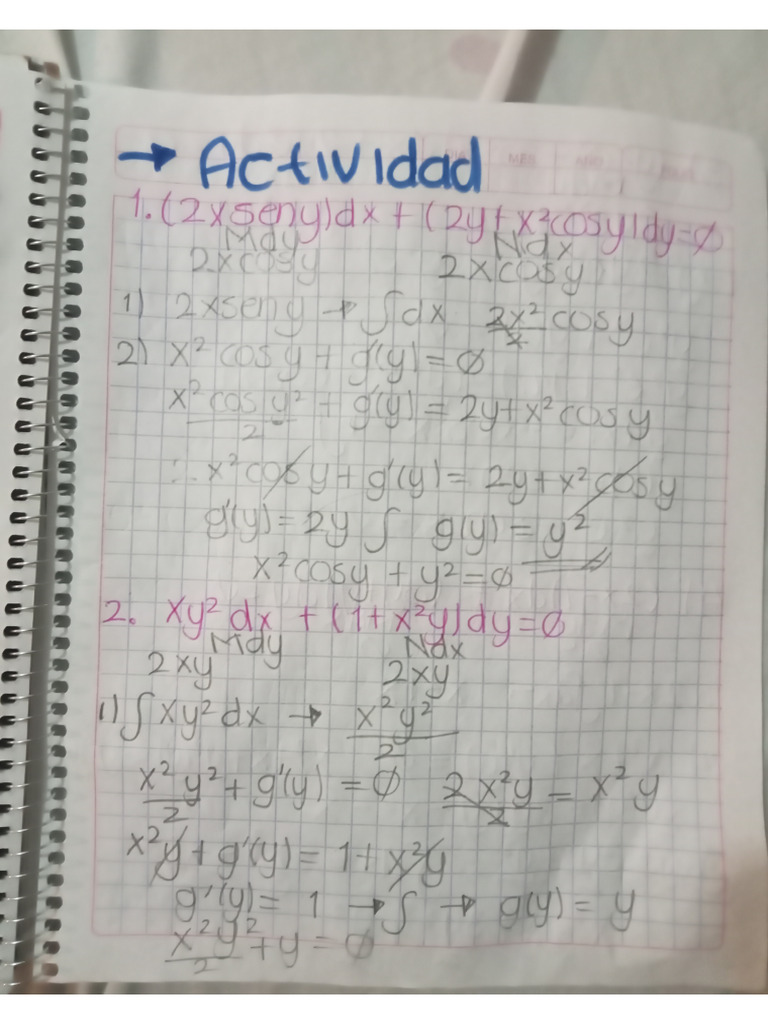 → Actividad
1. (2xseny)dx + (2y + x²cosy)dy=∅
Mdy Ndx
2xcosy 2xcosy
1) 2xseny → ∫dx 2x²/2 cosy
2) x² cosy + g'(y) = ∅
x² cosy²/2 + g'(y) = 2y+x² cosy
∴ x² cosy + g'(y) = 2y + x² cosy
g'(y) = 2y ∫ g(y) = y²
x² cosy + y² = ∅
2. xy² dx + (1+x²y)dy=∅
Mdy Ndx
2xy 2xy
1) ∫xy² dx → x²y²/2
x²/2 y² + g'(y) = ∅ 2x²y/2 = x²y
x²y + g'(y) = 1 + x²y
g'(y) = 1 → ∫ → g(y) = y
x²y²/2 + y = ∅